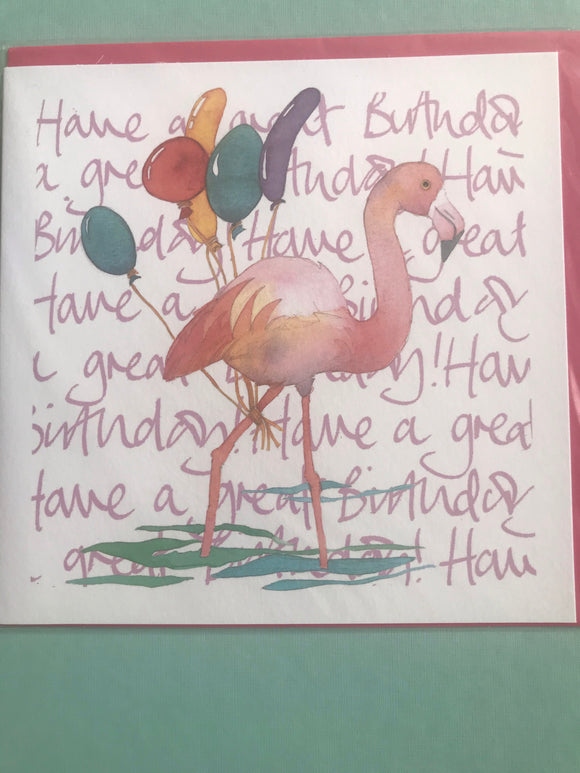 Have a great Birthday
a great Birthday! Hav
Birthday! Have a great
Have a great Birthday
a great Birthday! Hav
Birthday! Have a great
Have a great Birthday
great Birthday! Hav